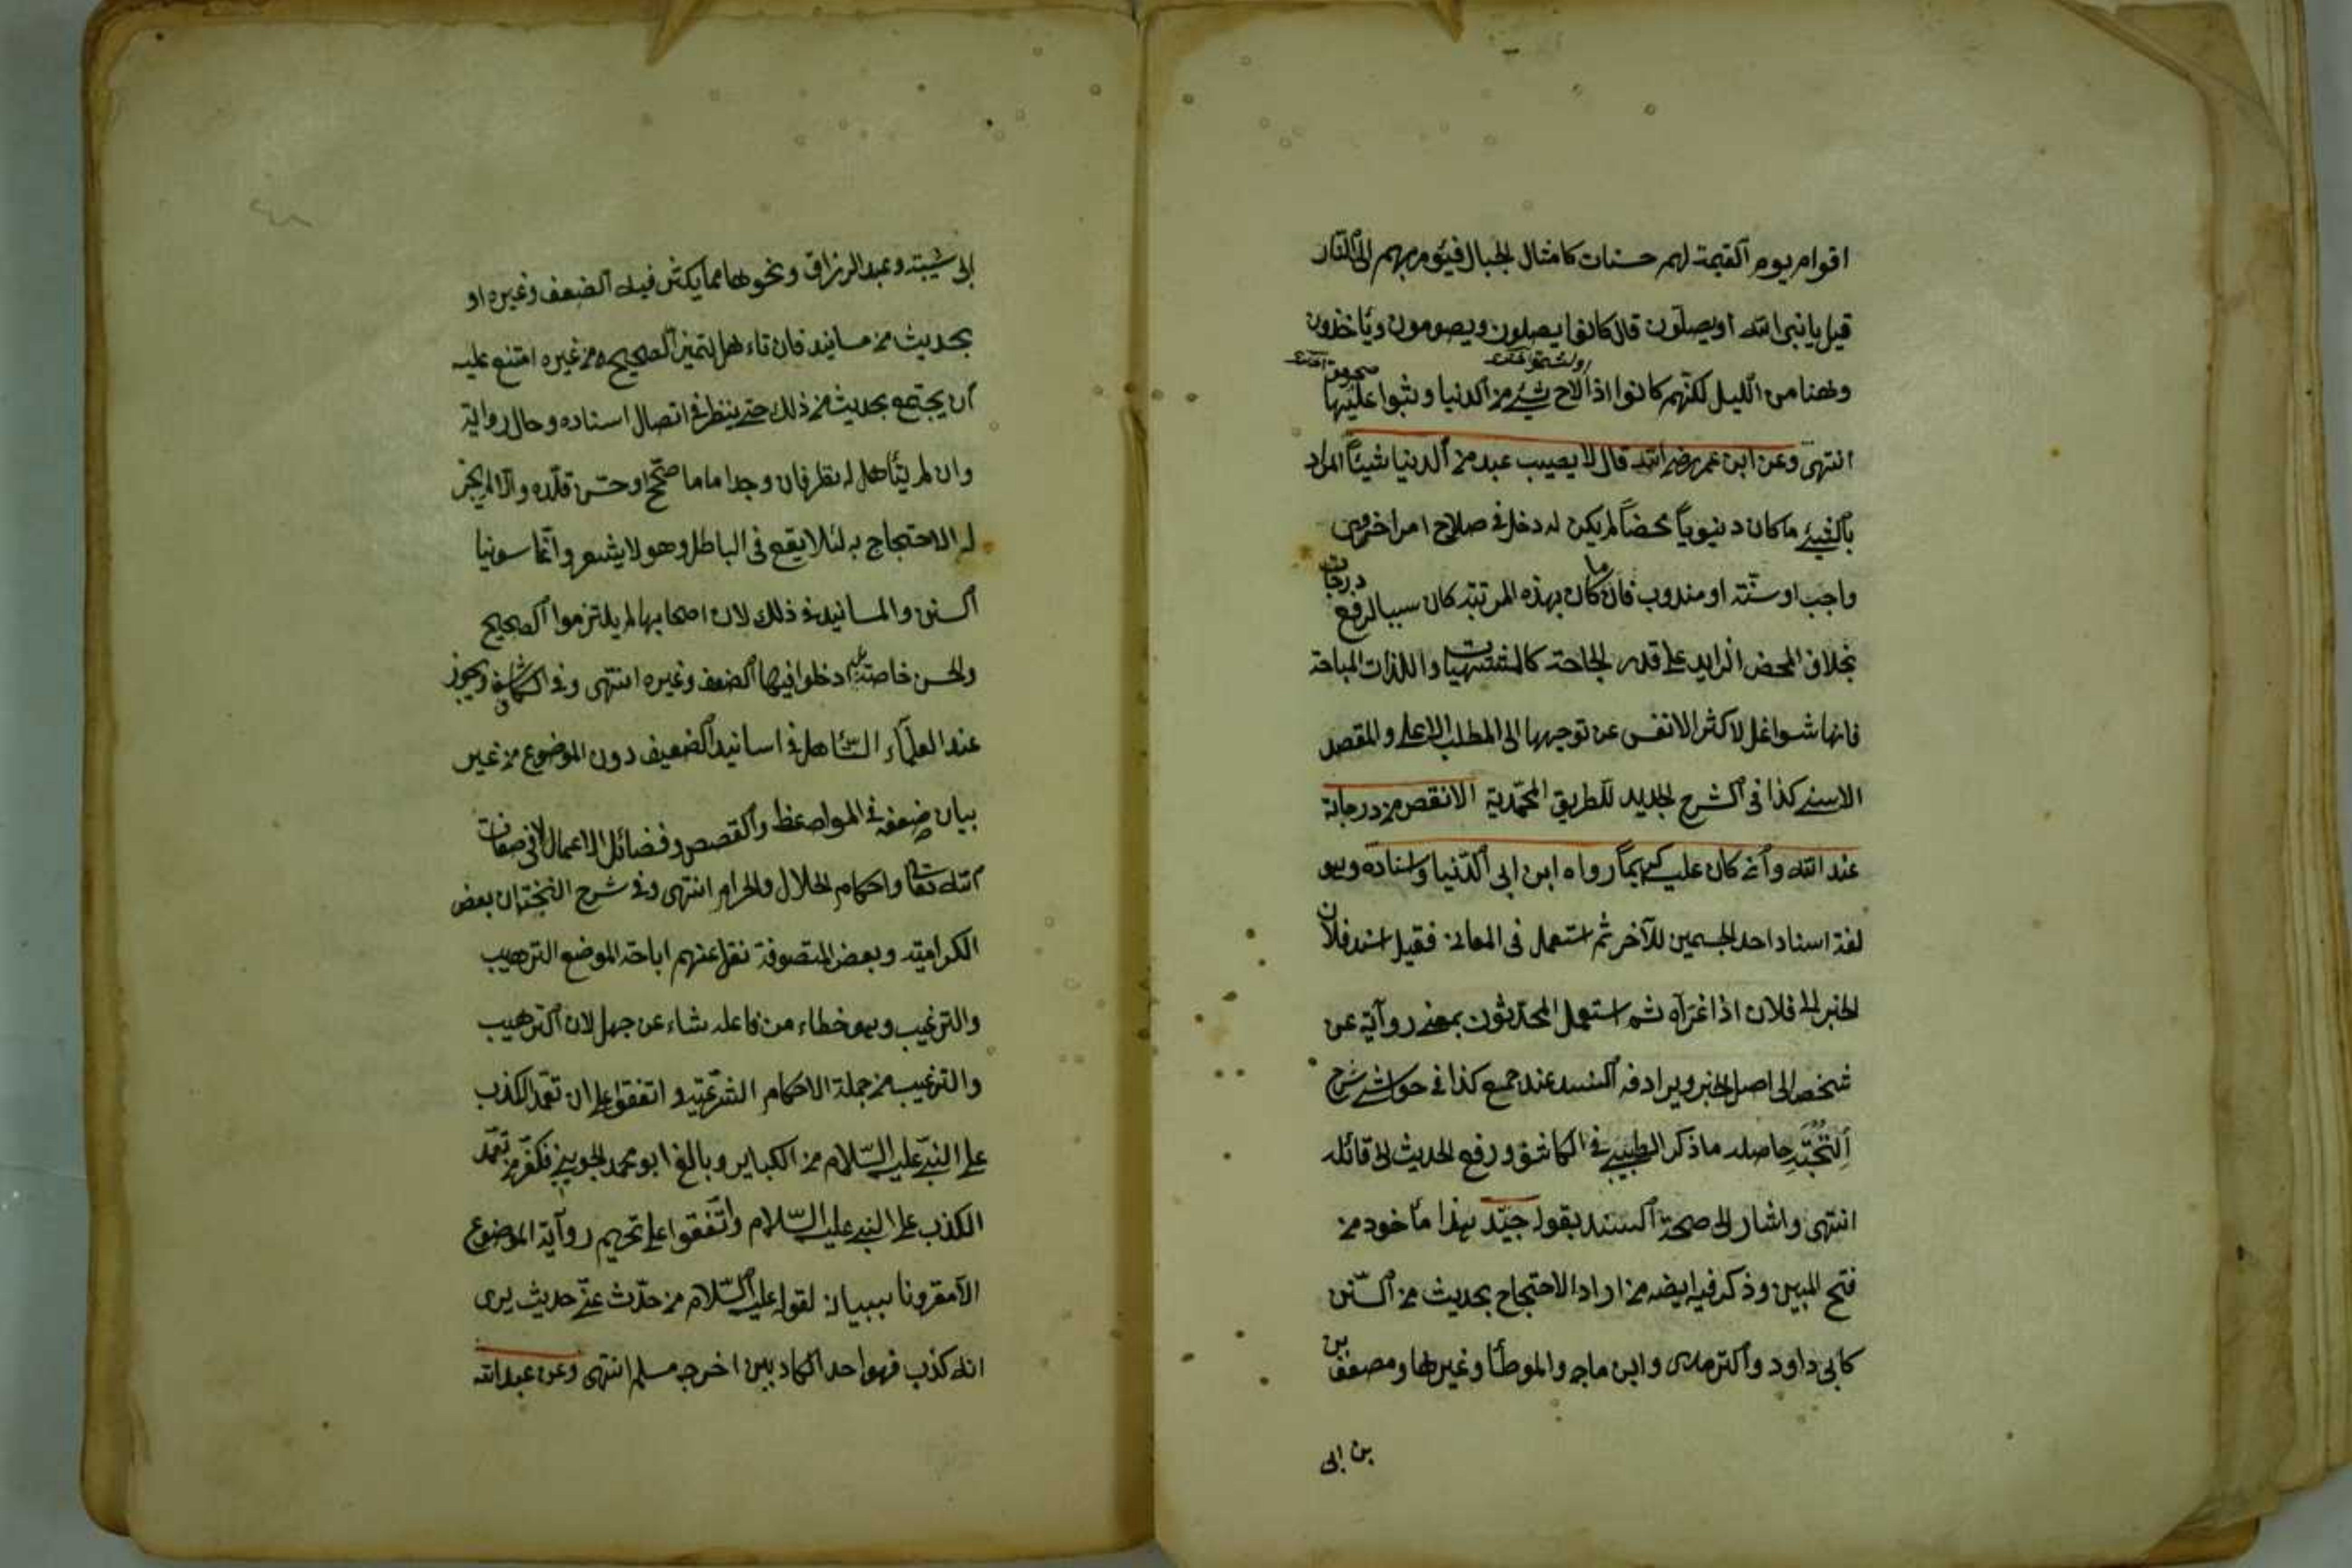 اقوام يوم القيمة لهم حسنات كامثال الجبال فيؤمر بهم الى النار
قيل يا نبى الله او يصلون قال كانوا يصلون ويصومون وياخذون
وهنا من الليل لكنهم كانوا اذا لاح شئ من الدنيا وثبوا عليها
انتهى وعن ابن عمر رضى الله قال لا يصيب عبد من الدنيا شيئا المراد
بالشئ ما كان دنيويا محضا لم يكن له دخل فى صلاح امر اخروى
واجب او سنة او مندوب فان ما كان بهذه المرتبة كان سببا لرفع درجات
بخلاف المحض الزايد على قدر الحاجة كالمشتهيات واللذات المباحة
فانها شواغل لاكثر الانفس عن توجهها الى المطلب الاعلى والمقصد
الاسنى كذا فى الشرح الجديد للطريق المحمدية الا نقص من درجاته
عند الله وان كان عليه كريما رواه ابن ابى الدنيا واسناده وهو
لغة اسناد احد الجسمين للآخر ثم استعمل فى المعانى فقيل اسند فلان
الخبر الى فلان اذا عزاه ثم استعمل المحدثون بمعنى رواية عن
شخص الى اصل الخبر ويرادفه السند عند جمع كذا فى حواشى شرح
النخبة حاصله ما ذكر الطيبى فى الكاشف ورفع الحديث الى قائله
انتهى واشار الى صحة السند بقوله جيد هذا مأخوذ من
فتح المبين وذكر فيه ايضه من اراد الاحتجاج بحديث من السنن
كابى داود والترمذى وابن ماجه والموطأ وغيرها ومصنف بن
بن ابى
ابى شيبة وعبد الرزاق ونحوهما مما يكثر فيه الضعف وغيره او
بحديث من مسانيد فان تاءهل لتميز الصحيح من غيره امتنع عليه
ان يحتج بحديث من ذلك حتى ينظر فى اتصال اسناده وحال رواته
وان لم يتأهل له نظر فان وجد اماما صحح او حسن قلده والا لم يجز
له الاحتجاج به لئلا يقع فى الباطل وهو لا يشعر وانما سوينا
السنن والمسانيد فى ذلك لان اصحابها لم يلتزموا الصحيح
والحسن خاصة بل ادخلوا فيها الضعف وغيره انتهى وفى الكاشف ويجوز
عند العلماء التساهل فى اسانيد الضعيف دون الموضوع من غير
بيان ضعفه فى المواعظ والقصص وفضائل الاعمال لا فى صفات
الله تعالى واحكام الحلال والحرام انتهى وفى شرح النخبة ان بعض
الكرامية وبعض المتصوفة نقل عنهم اباحة الموضع الترهيب
والترغيب وهو خطاء من فاعله نشاء عن جهل لان الترهيب
والترغيب من جملة الاحكام الشرعية واتفقوا على ان تعمد الكذب
على النبى عليه السلام من الكباير وبالغ ابو محمد الجوينى فكفر من تعمد
الكذب على النبى عليه السلام واتفقوا على تحريم رواية الموضوع
الا مقرونا ببيانه لقوله عليه السلام من حدث عنى حديث يرى
انه كذب فهو احد الكاذبين اخرجه مسلم انتهى وعن عبد الله